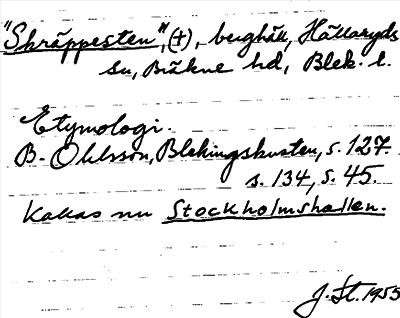 "Skräppesten", (+), berghäll, Hällaryds
sn, Bräkne hd, Blek. l.
Etymologi.
B. Ohlsson, Blekingskusten, s. 127
s. 134, s. 45.
Kallas nu Stockholmshallen.
J. St. 1955